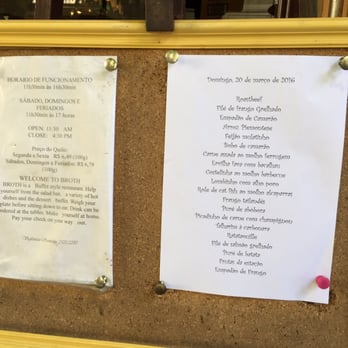 HORARIO DE FUNCIONAMENTO
11h30min às 16h30min
SÁBADO, DOMINGOS E
FERIADOS
11h30min às 17 horas
OPEN: 11:30 AM
CLOSE: 4:30 PM
Preço do Quilo:
Segunda a Sexta R$ 6,49 (100g)
Sábados, Domingos e Feriados: R$ 6,79
(100g)
WELCOME TO BROTH
BROTH is a Buffet style restaurant. Help
yourself from the salad bar, a variety of hot
dishes and the dessert buffet. Weigh your
plate before sitting down to eat. Drink can be
ordered at the tables. Make yourself at home.
Pay your check on your way out.
Domingo, 20 de março de 2016
Roastbeef
Filé de Frango Grelhado
Empadão de Camarão
Arroz Piemontese
Feijão mulatinho
Bobo de camarão
Carne assada ao molho ferrugem
Ervilha torta com bacalhau
Costelinha ao molho barbecue
Lombinho com alho poró
Rolê de cat fish ao molho alcaparras
Frango tailandês
Purê de abóbora
Picadinho de carne com champignons
Talharim à carbonara
Ratatouille
Filé de salmão grelhado
Purê de batata
Frutas da estação
Empadão de Frango